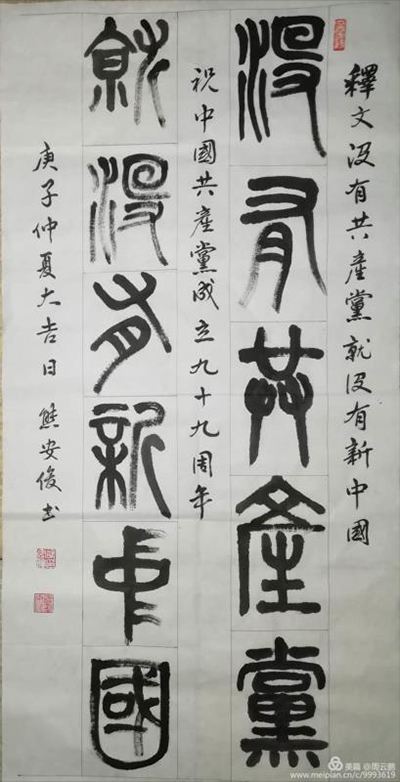 釋文没有共產黨就没有新中國
没有共產黨
祝中國共產黨成立九十九周年
就没有新中國
庚子仲夏大吉日 熊安俊書
美篇 @周云鹏
www.meipian.cn/c/9993619